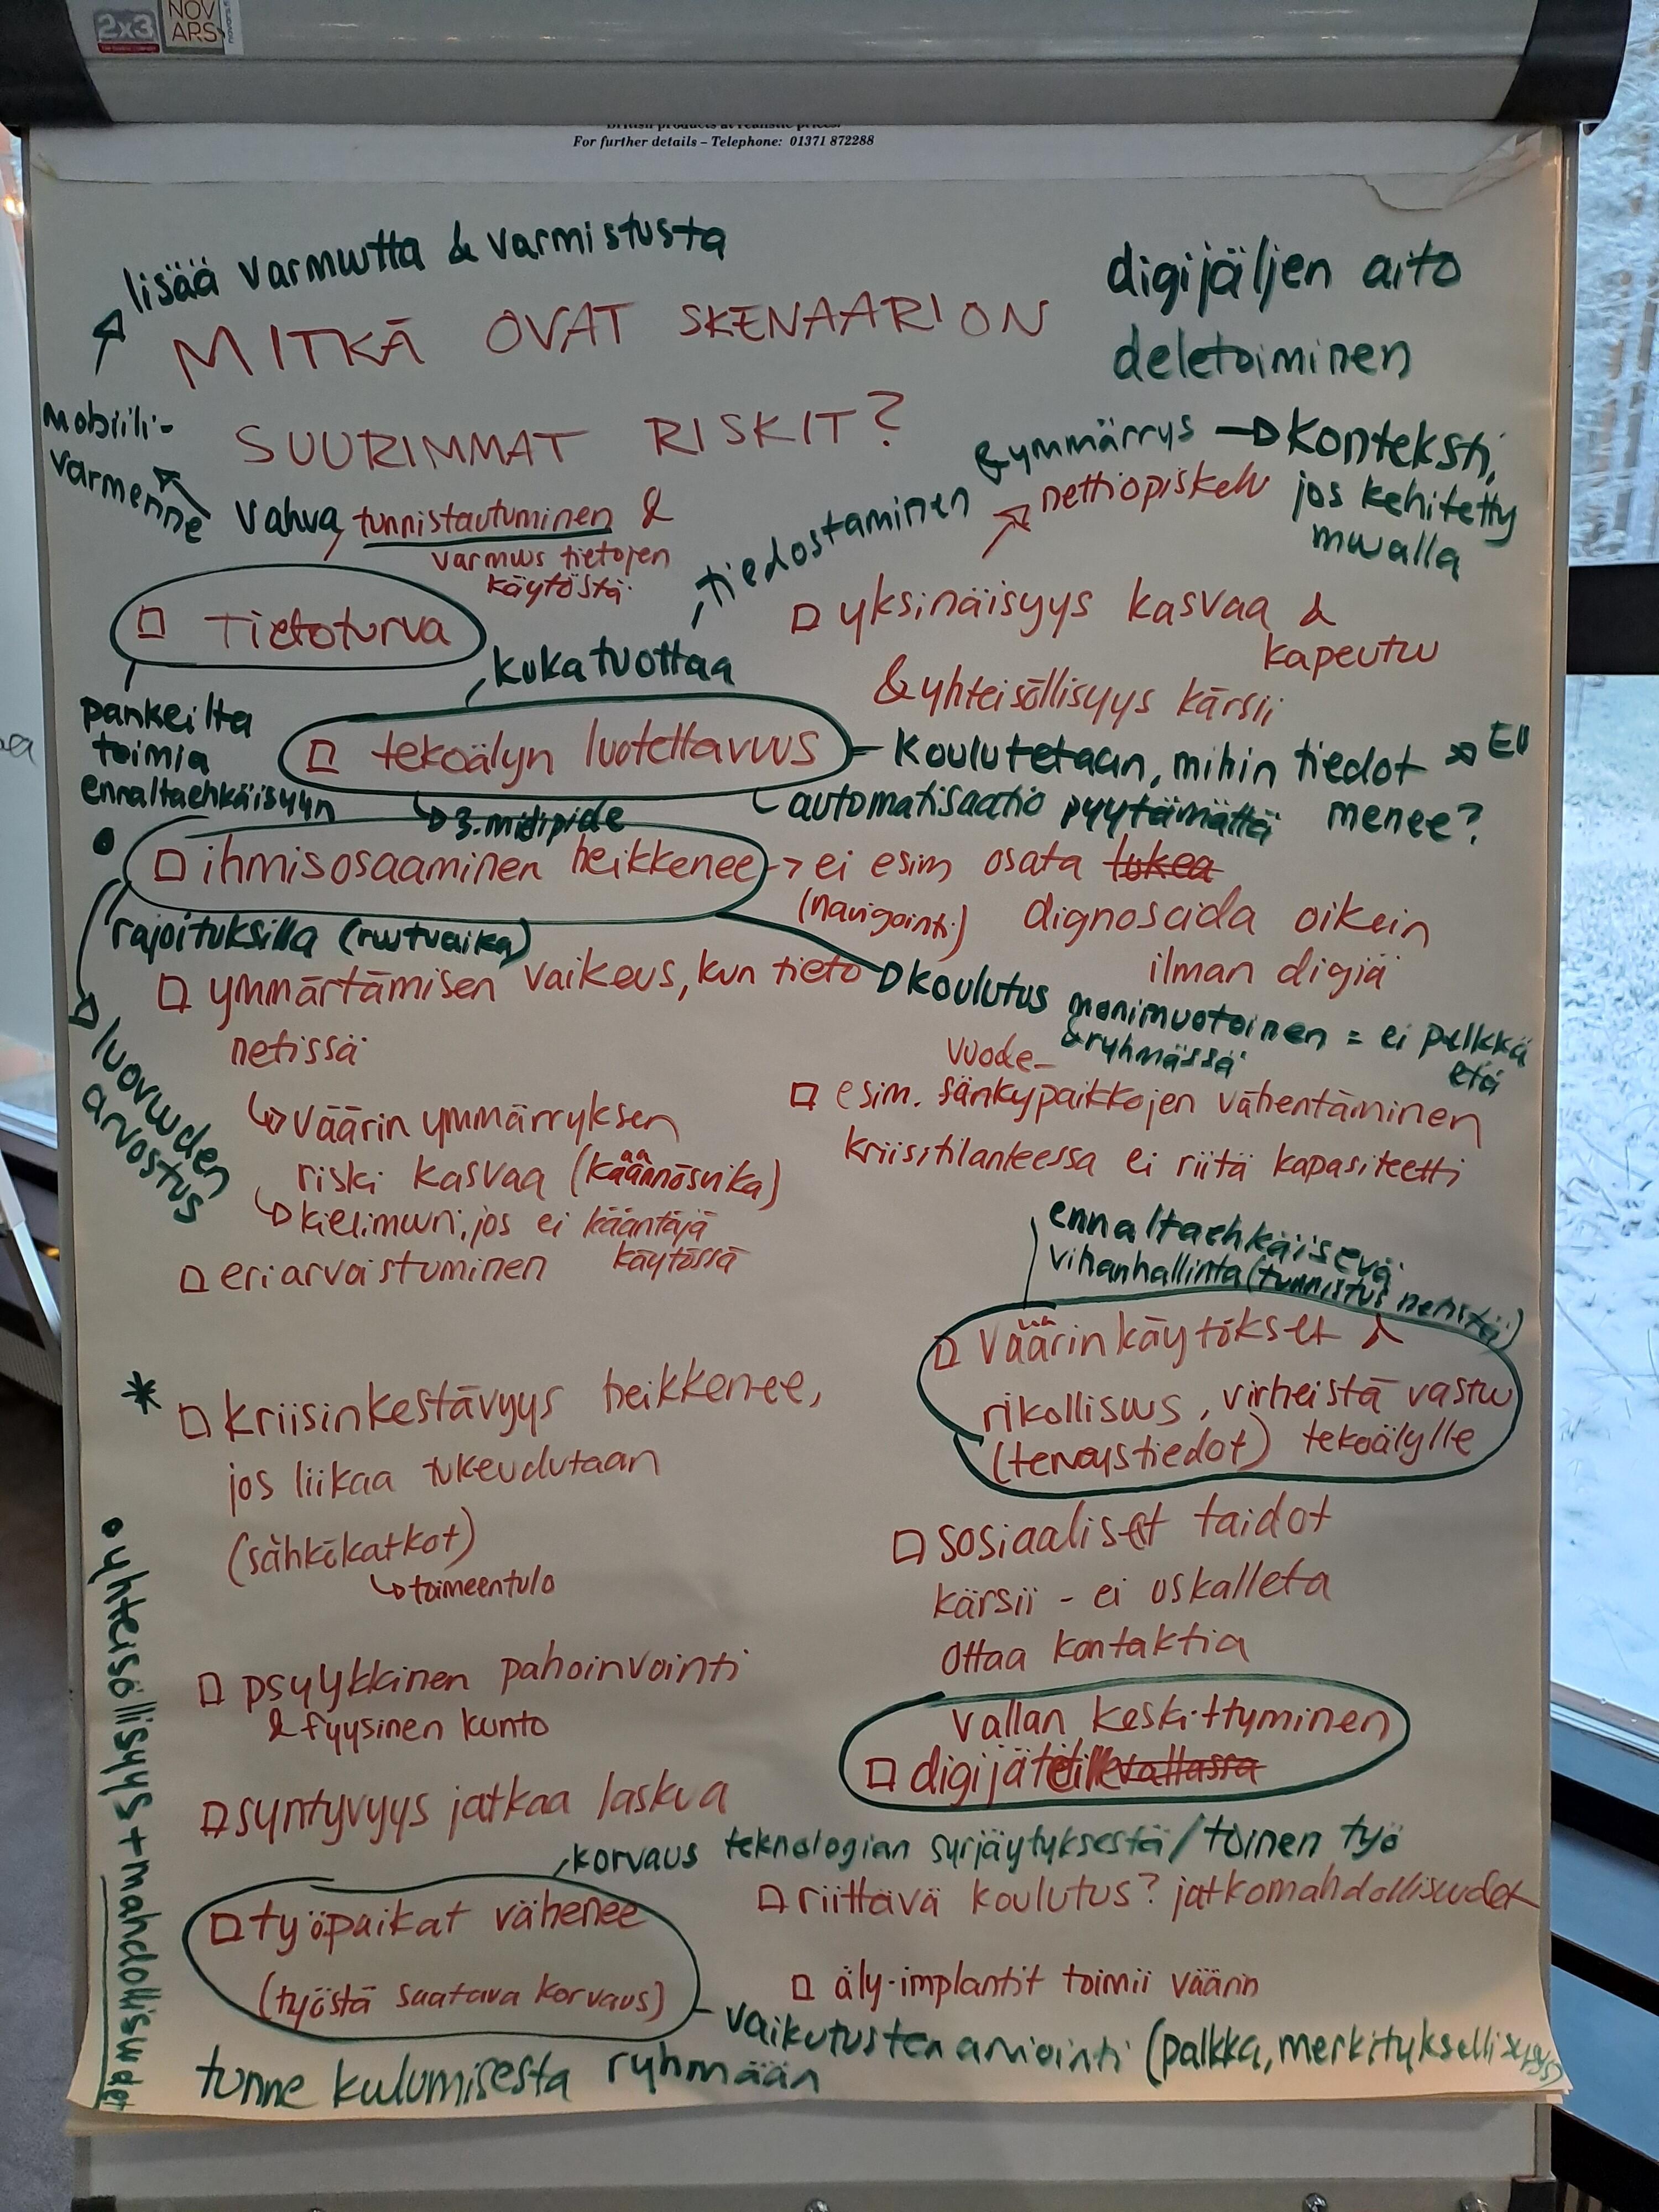 2x3
NOV
ARS
British products at realistic prices.
For further details – Telephone: 01371 872288
lisää varmuutta & varmistusta
digijäljen aito
deletoiminen
MITKÄ OVAT SKENAARION
SUURIMMAT RISKIT?
mobiili-
varmenne
vahva tunnistautuminen &
varmuus tietojen
käytöstä
tiedostaminen & ymmärrys → konteksti,
jos kehitetty
muualla
nettiopiskelu
□ Tietoturva
□ yksinäisyys kasvaa &
kapeutuu
& yhteisöllisyys kärsii
kuka tuottaa
pankeilta
toimia
ennaltaehkäisyyn
□ tekoälyn luotettavuus
koulutetaan, mihin tiedot → EU
menee?
automatisaatio pyytämättä
↳ 3. mielipide
□ ihmisosaaminen heikkenee → ei esim osata tukea
(navigointi) dignosoida oikein
ilman digiä
rajoituksilla (ruutuaika)
→ koulutus monimuotoinen = ei pelkkä
etä
& ryhmässä
luovuuden
arvostus
□ ymmärtämisen vaikeus, kun tieto
netissä
↳ väärin ymmärryksen
riski kasvaa (käännösvika)
↳ kielimuuri, jos ei kääntäjä
käytössä
□ eriarvoistuminen
vuode-
□ esim. sänkypaikkojen vähentäminen
kriisitilanteessa ei riitä kapasiteetti
ennaltaehkäisevä
vihanhallinta (tunnistus netistä)
□ väärinkäytökset &
rikollisuus, virheistä vastuu
(terveystiedot) tekoälylle
* □ kriisinkestävyys heikkenee,
jos liikaa tukeudutaan
(sähkökatkot)
↳ toimeentulo
□ sosiaaliset taidot
kärsii - ei uskalleta
ottaa kontaktia
□ psyykkinen pahoinvointi
& fyysinen kunto
vallan keskittyminen
□ digijäteille vallassa
□ syntyvyys jatkaa laskua
korvaus teknologian syrjäytyksestä / toinen työ
□ työpaikat vähenee
(työstä saatava korvaus)
□ riittävä koulutus? jatkomahdollisuudet
□ äly-implantit toimii väärin
vaikutusten arviointi (palkka, merkityksellisyys)
• yhteisöllisyys + mahdollisuudet
tunne kulumisesta ryhmään